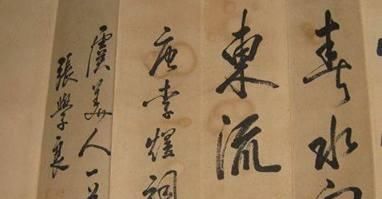 春水向
東流
唐李煜詞
虞美人一
張學良